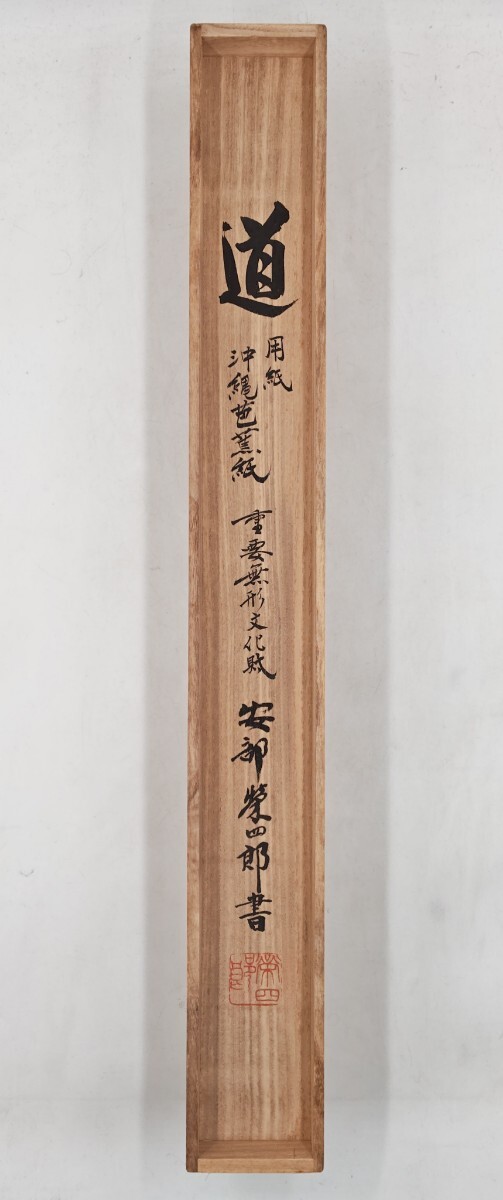 道
用紙
沖縄芭蕉紙
重要無形文化財
安部榮四郎書
榮四郎